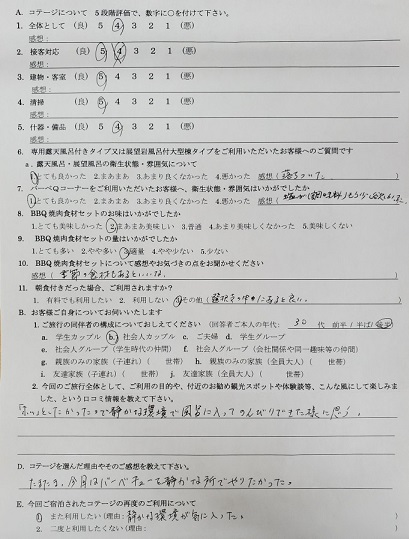 A. コテージについて 5段階評価で、数字に○を付けて下さい。
1. 全体として (良) 5 4 3 2 1 (悪)
感想:
2. 接客対応 (良) 5 4 3 2 1 (悪)
感想:
3. 建物・客室 (良) 5 4 3 2 1 (悪)
感想:
4. 清掃 (良) 5 4 3 2 1 (悪)
感想:
5. 什器・備品 (良) 5 4 3 2 1 (悪)
感想:
6. 専用露天風呂付きタイプ又は展望岩風呂付大型棟タイプをご利用いただいたお客様へのご質問です
a. 露天風呂・展望風呂の衛生状態・雰囲気について
1.とても良かった 2.まあまあ 3.あまり良くなかった 4.悪かった 感想(落ちついた)
7. バーベQコーナーをご利用いただいたお客様へ、衛生状態・雰囲気はいかがでしたか
1.とても良かった 2.まあまあ 3.あまり良くなかった 4.悪かった 感想(
8. BBQ焼肉食材セットのお味はいかがでしたか
1.とても美味しかった 2.まあまあ美味しい 3.普通 4.あまり美味しくなかった 5.美味しくない
9. BBQ焼肉食材セットの量はいかがでしたか
1.とても多い 2.やや多い 3.適量 4.やや少ない 5.少ない
10. BBQ焼肉食材セットについて感想やお気づきの点をお聞かせください
感想(季節の食材もあるといいな。)
11. 朝食付きだった場合、ご利用されますか?
1. 有料でも利用したい 2. 利用しない 3.その他(選択の中にあると良い。)
B. お客様ご自身についてお伺いいたします
1.ご旅行の同伴者の構成についておしえてください (回答者ご本人の年代: 30 代 前半/半ば/後半)
a. 学生カップル b. 社会人カップル c. ご夫婦 d. 学生グループ
e. 社会人グループ(学生時代の仲間) f. 社会人グループ(会社関係や同一趣味等の仲間)
g. 親族のみの家族(子連れ)( 世帯) h. 親族のみの家族(全員大人)( 世帯)
i. 友達家族(子連れ)( 世帯) j. 友達家族(全員大人)( 世帯)
2. 今回のご旅行全体として、ご利用の目的や、付近のお勧め観光スポットや体験談等、こんな風にして楽しみま
した、という口コミ情報を教えて下さい。
「ホッ」としたかったので静かな環境で風呂に入ってのんびりできた様に思う。
D. コテージを選んだ理由やそのご感想を教えて下さい。
たまたま、今月はバーベキューを静かな所でやりたかった。
E. 今回ご宿泊されたコテージの再度のご利用について
1. また利用したい(理由:静かな環境が気に入った。)
2. 二度と利用したくない(理由: )